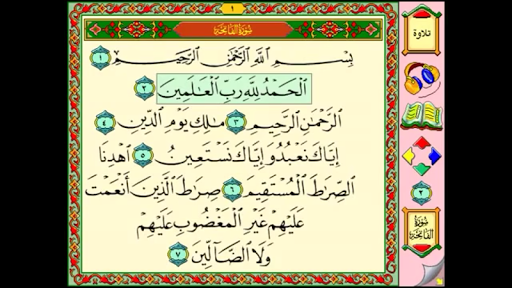 ١
سُورَةُ الفَاتِحَةِ
بِسْمِ اللَّهِ الرَّحْمَٰنِ الرَّحِيمِ ١
الْحَمْدُ لِلَّهِ رَبِّ الْعَالَمِينَ ٢
الرَّحْمَٰنِ الرَّحِيمِ ٣ مَالِكِ يَوْمِ الدِّينِ ٤
إِيَّاكَ نَعْبُدُ وَإِيَّاكَ نَسْتَعِينُ ٥ اهْدِنَا
الصِّرَاطَ الْمُسْتَقِيمَ ٦ صِرَاطَ الَّذِينَ أَنْعَمْتَ
عَلَيْهِمْ غَيْرِ الْمَغْضُوبِ عَلَيْهِمْ
وَلَا الضَّالِّينَ ٧
تلاوة
٢
سُورَةُ
الفَاتِحَةِ